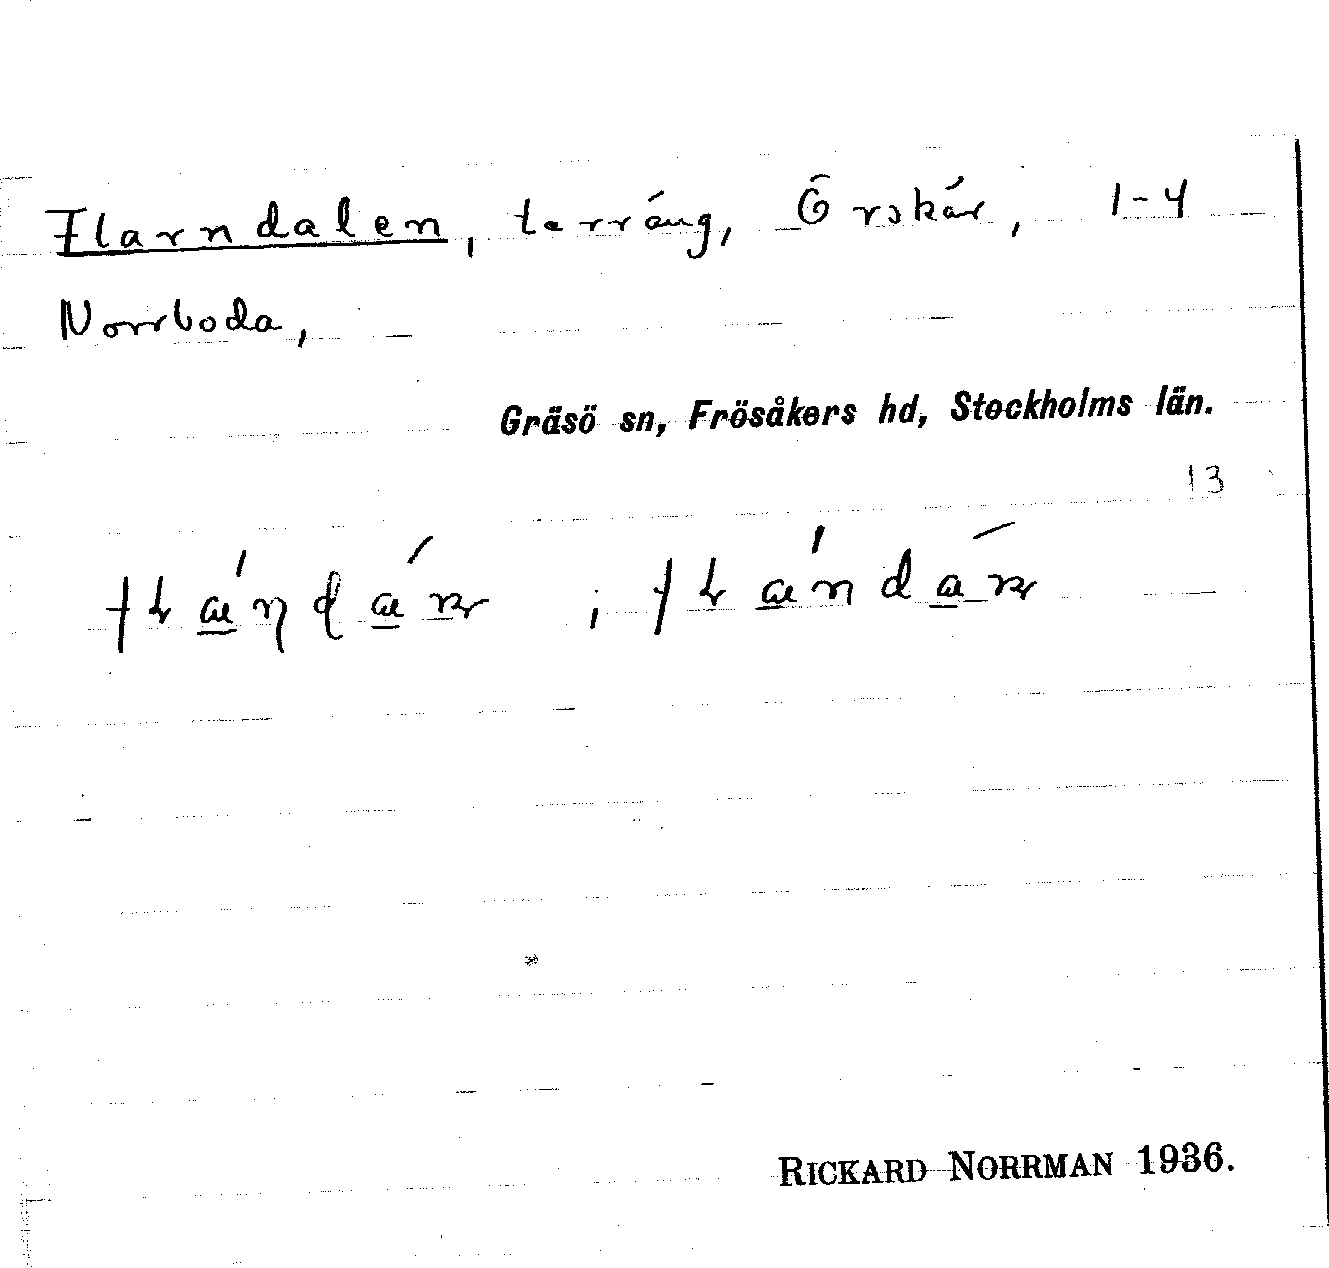 Flarndalen, terräng, Örskär, 1-4
Norrboda,
Gräsö sn, Frösåkers hd, Stockholms län.
13
RICKARD NORRMAN 1936.